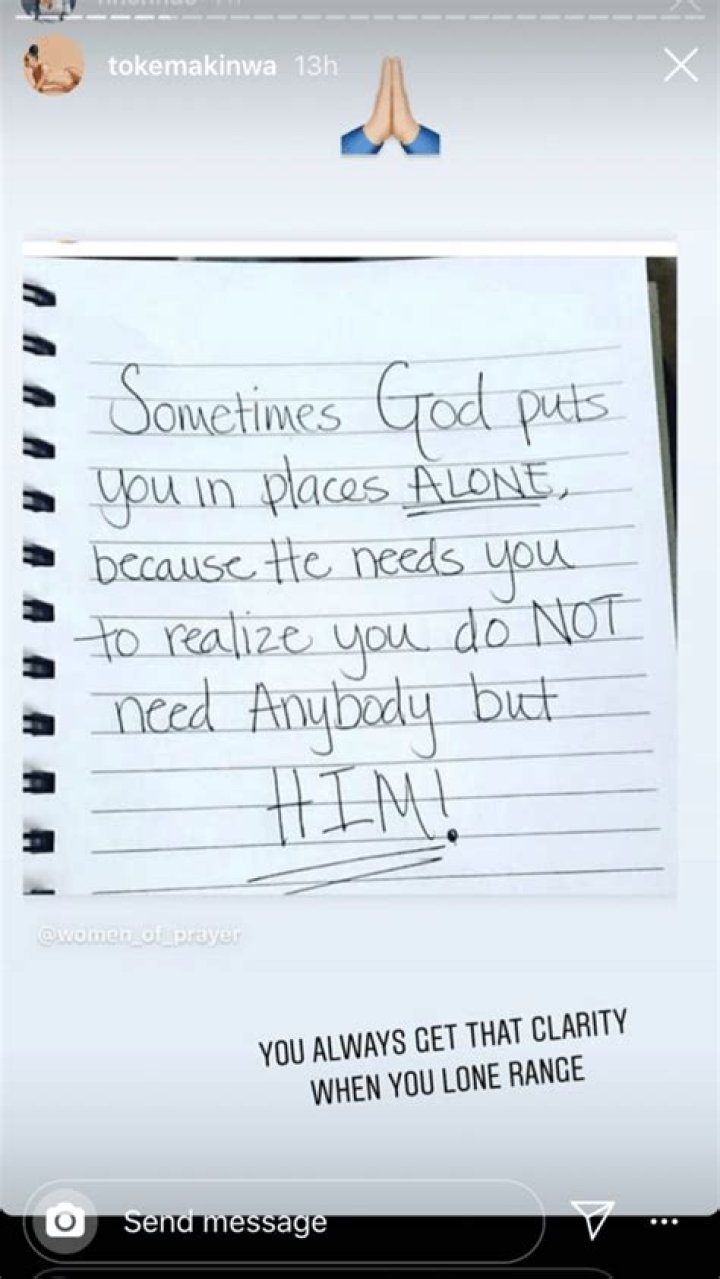 tokemakinwa 13h
Sometimes God puts
you in places ALONE,
because He needs you
to realize you do NOT
need Anybody but
HIM!
@women_of_prayer
YOU ALWAYS GET THAT CLARITY
WHEN YOU LONE RANGE
Send message